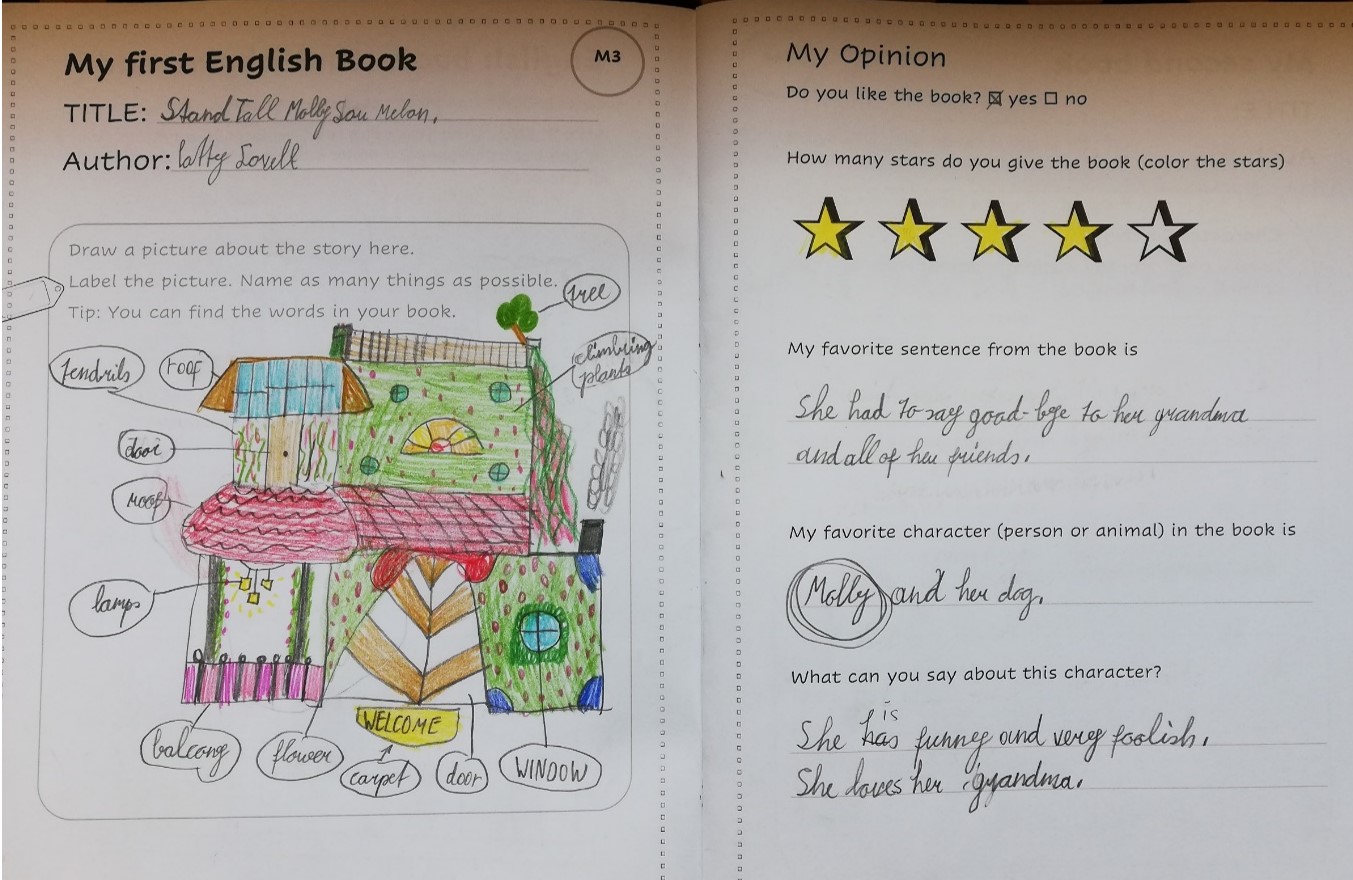 My first English Book
M3
TITLE: Stand Tall Molly Lou Melon.
Author: Patty Lovell
Draw a picture about the story here.
Label the picture. Name as many things as possible.
Tip: You can find the words in your book.
tree
climbing plants
tendrils
roof
door
roof
lamps
balcony
flower
WELCOME
carpet
door
WINDOW
My Opinion
Do you like the book? ☒ yes ☐ no
How many stars do you give the book (color the stars)
My favorite sentence from the book is
She had to say good-bye to her grandma
and all of her friends.
My favorite character (person or animal) in the book is
Molly and her dog.
What can you say about this character?
is
She has funney and very foolish.
She loves her grandma.